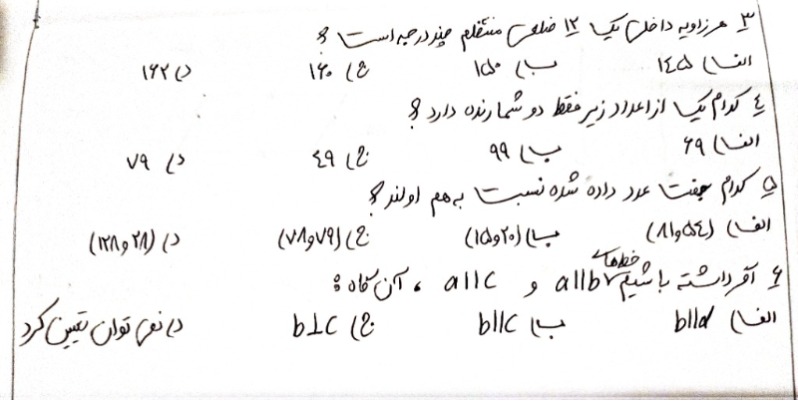 ۳ هر زاویه داخلی یک ۱۲ ضلعی منتظم چند درجه است ؟
الف) ۱۴۵ ب) ۱۵۰ ج) ۱۶۰ د) ۱۶۲
٤ کدام یک از اعداد زیر فقط دو شمارنده دارد ؟
الف) ۶۹ ب) ۹۹ ج) ٤۹ د) ۷۹
۵ کدام جفت عدد داده شده نسبت به هم اولند ؟
الف) (۵٤ و ۸۱) ب) (۲۰ و ۱۵) ج) (۷۹ و ۷۸) د) (۲۸ و ۱۲۸)
۶ اگر داشته باشیم خط‌های a||b و a||c ، آن گاه :
الف) b||d ب) b||c ج) b⊥c د) نمی توان تعیین کرد